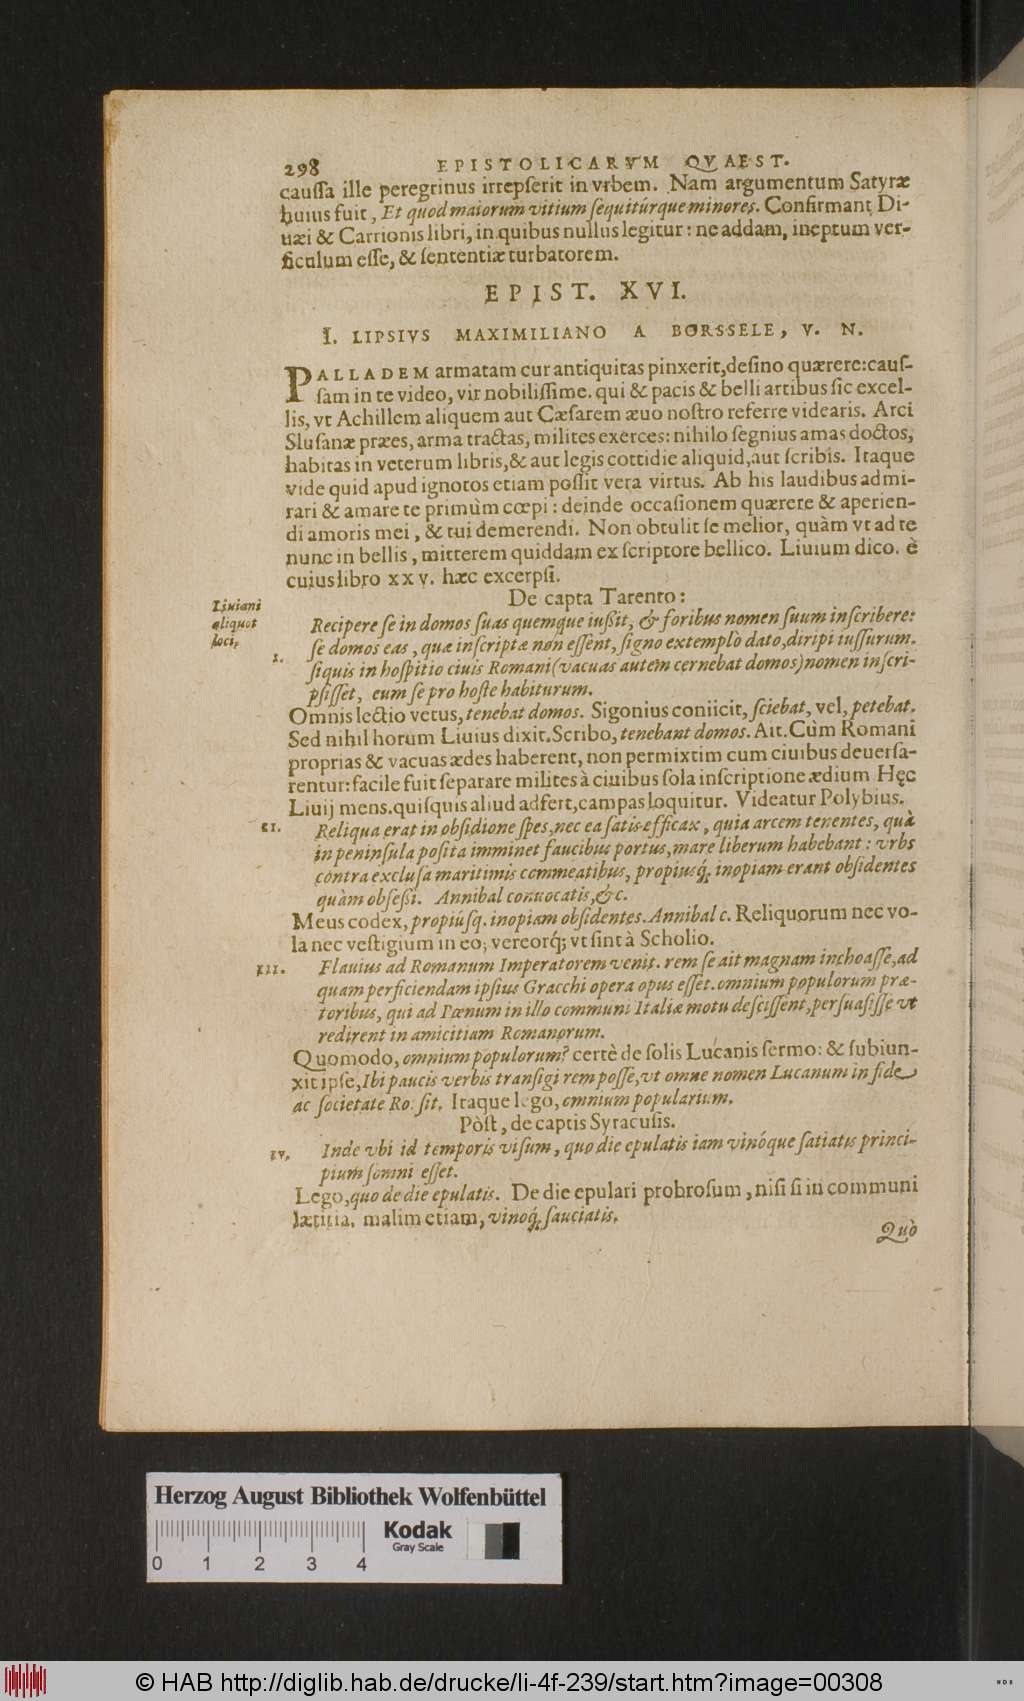 298 EPISTOLICARVM QVAEST.
caussa ille peregrinus irrepserit in vrbem. Nam argumentum Satyræ
huius fuit, Et quod maiorum vitium sequitúrque minores. Confirmant Di-
uæi & Carrionis libri, in quibus nullus legitur: ne addam, ineptum ver-
siculum esse, & sententiæ turbatorem.
EPIST. XVI.
I. LIPSIVS MAXIMILIANO A BORSSELE, V. N.
PALLADEM armatam cur antiquitas pinxerit, desino quærere: caus-
sam in te video, vir nobilissime. qui & pacis & belli artibus sic excel-
lis, vt Achillem aliquem aut Cæsarem æuo nostro referre videaris. Arci
Slusanæ præes, arma tractas, milites exerces: nihilo segnius amas doctos,
habitas in veterum libris, & aut legis cottidie aliquid, aut scribis. Itaque
vide quid apud ignotos etiam possit vera virtus. Ab his laudibus admi-
rari & amare te primùm cœpi: deinde occasionem quærere & aperien-
di amoris mei, & tui demerendi. Non obtulit se melior, quàm vt ad te
nunc in bellis, mitterem quiddam ex scriptore bellico. Liuium dico. è
cuius libro xxv. hæc excerpsi.
De capta Tarento:
Liuiani
aliquot
loci.
I.
Recipere se in domos suas quemque iußit, & foribus nomen suum inscribere:
se domos eas, quæ inscriptæ non essent, signo extemplò dato, diripi iussurum.
siquis in hospitio ciuis Romani (vacuas autem cernebat domos) nomen inscri-
psisset, eum se pro hoste habiturum.
Omnis lectio vetus, tenebat domos. Sigonius coniicit, sciebat, vel, petebat.
Sed nihil horum Liuius dixit. Scribo, tenebant domos. Ait. Cùm Romani
proprias & vacuas ædes haberent, non permixtim cum ciuibus deuersa-
rentur: facile fuit separare milites à ciuibus sola inscriptione ædium Hęc
Liuij mens. quisquis aliud adfert, campas loquitur. Videatur Polybius.
II.
Reliqua erat in obsidione spes, nec ea satis efficax, quia arcem tenentes, quæ
in peninsula posita imminet faucibus portus, mare liberum habebant: vrbs
contra exclusa maritimis commeatibus, propiusq́; inopiam erant obsidentes
quàm obseßi. Annibal conuocatis, &c.
Meus codex, propiúsq. inopiam obsidentes. Annibal c. Reliquorum nec vo-
la nec vestigium in eo; vereorq́; vt sint à Scholio.
III.
Flauius ad Romanum Imperatorem venit. rem se ait magnam inchoasse, ad
quam perficiendam ipsius Gracchi opera opus esset. omnium populorum præ-
toribus, qui ad Pœnum in illo communi Italiæ motu descissent, persuasisse vt
redirent in amicitiam Romanorum.
Quomodo, omnium populorum? certè de solis Lucanis sermo: & subiun-
xit ipse, Ibi paucis verbis transigi rem posse, vt omne nomen Lucanum in fide
ac societate Ro. sit. Itaque lego, omnium popularium.
Pòst, de captis Syracusis.
IV.
Inde vbi id temporis visum, quo die epulatis iam vinóque satiatis princi-
pium somni esset.
Lego, quo de die epulatis. De die epulari probrosum, nisi si in communi
lætitia. malim etiam, vinoq́; sauciatis.
Quò
Herzog August Bibliothek Wolfenbüttel
Kodak
Gray Scale
0 1 2 3 4
© HAB http://diglib.hab.de/drucke/li-4f-239/start.htm?image=00308